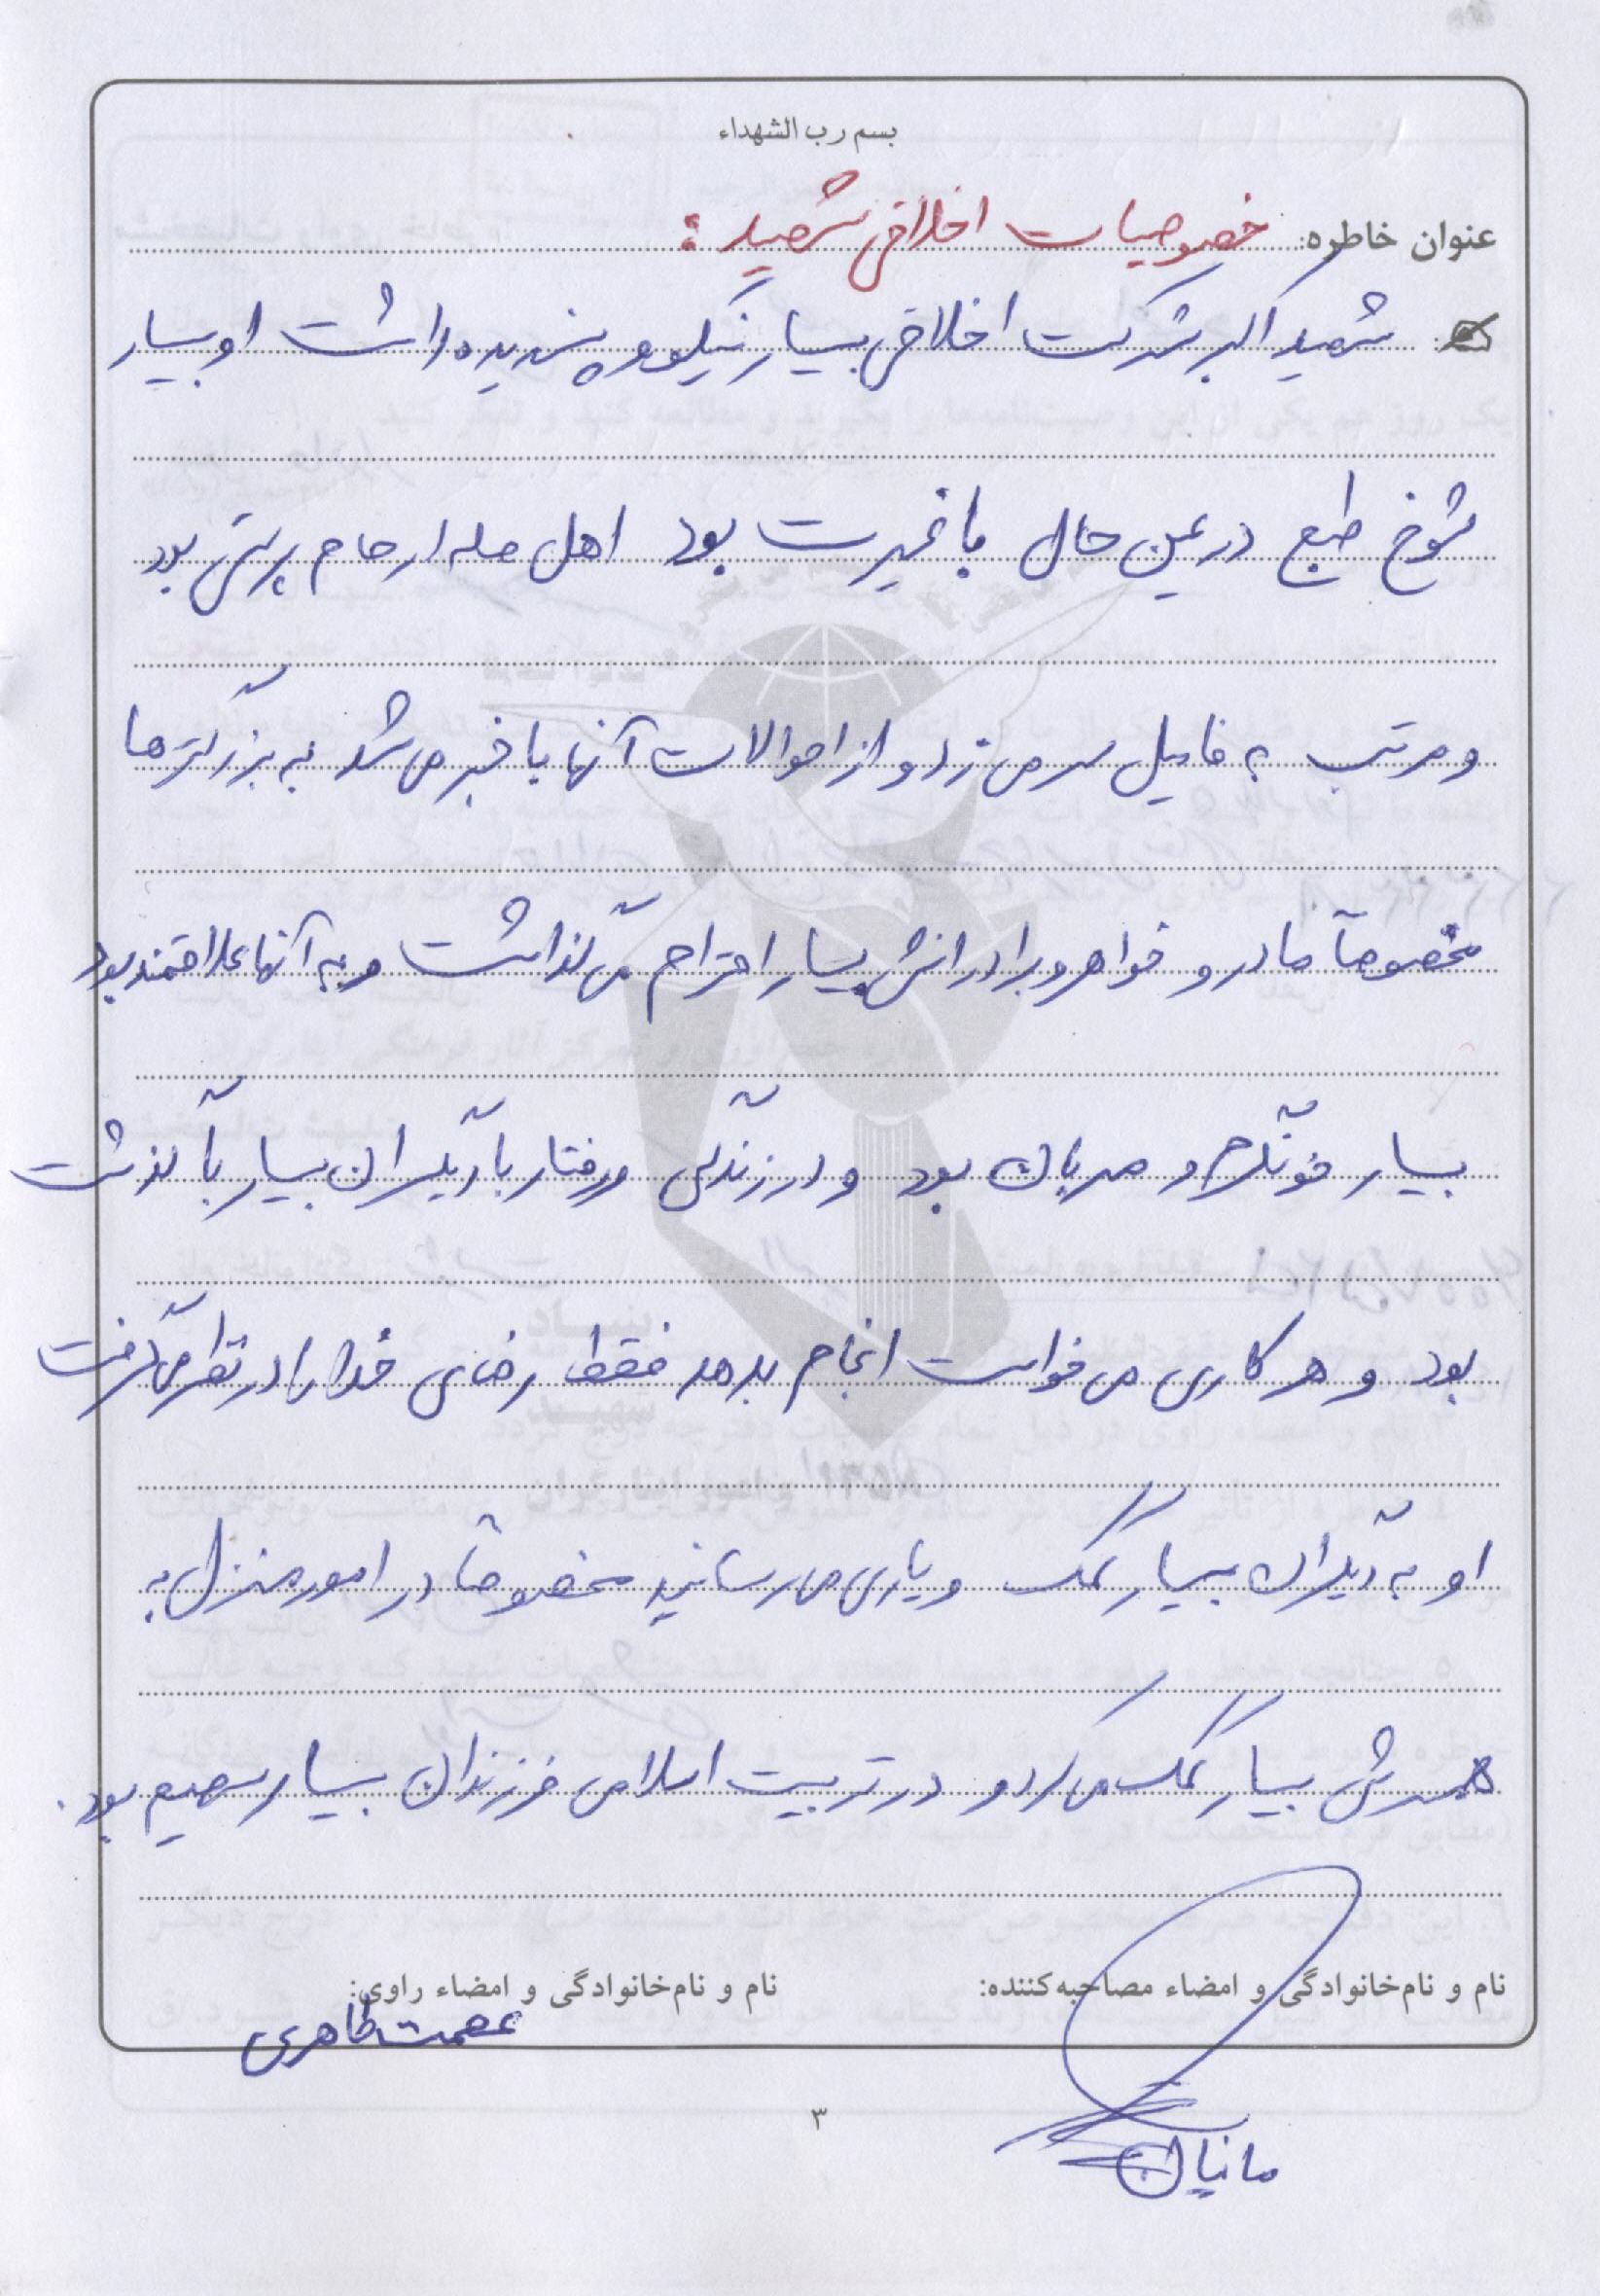 بسم رب الشهداء
عنوان خاطره: خصوصیات اخلاقی شهید:
شهید اکبر شرکت اخلاقی بسیار نیکو و پسندیده داشت او بسیار
شوخ طبع در عین حال با غیرت بود اهل صله ارحام پرسی بود
و مرتب به فامیل سر می زد و از احوالات آنها با خبر می شد به بزرگترها
مخصوصاً مادر و خواهر و برادرانش بسیار احترام می گذاشت و به آنها علاقمند بود
بسیار خونگرم و مهربان بود و در زندگی و رفتار با دیگران بسیار با گذشت
بود و هر کاری می خواست انجام بدهد فقط رضای خدا را در نظر می گرفت
او به دیگران بسیار کمک و یاری می رسانید مخصوصاً در امور منزل به
همسرش بسیار کمک می کرد و در تربیت اسلامی فرزندان بسیار سهیم بود.
نام و نام‌خانوادگی و امضاء مصاحبه‌کننده: نام و نام‌خانوادگی و امضاء راوی:
عصمت طاهری
۳
مانیان